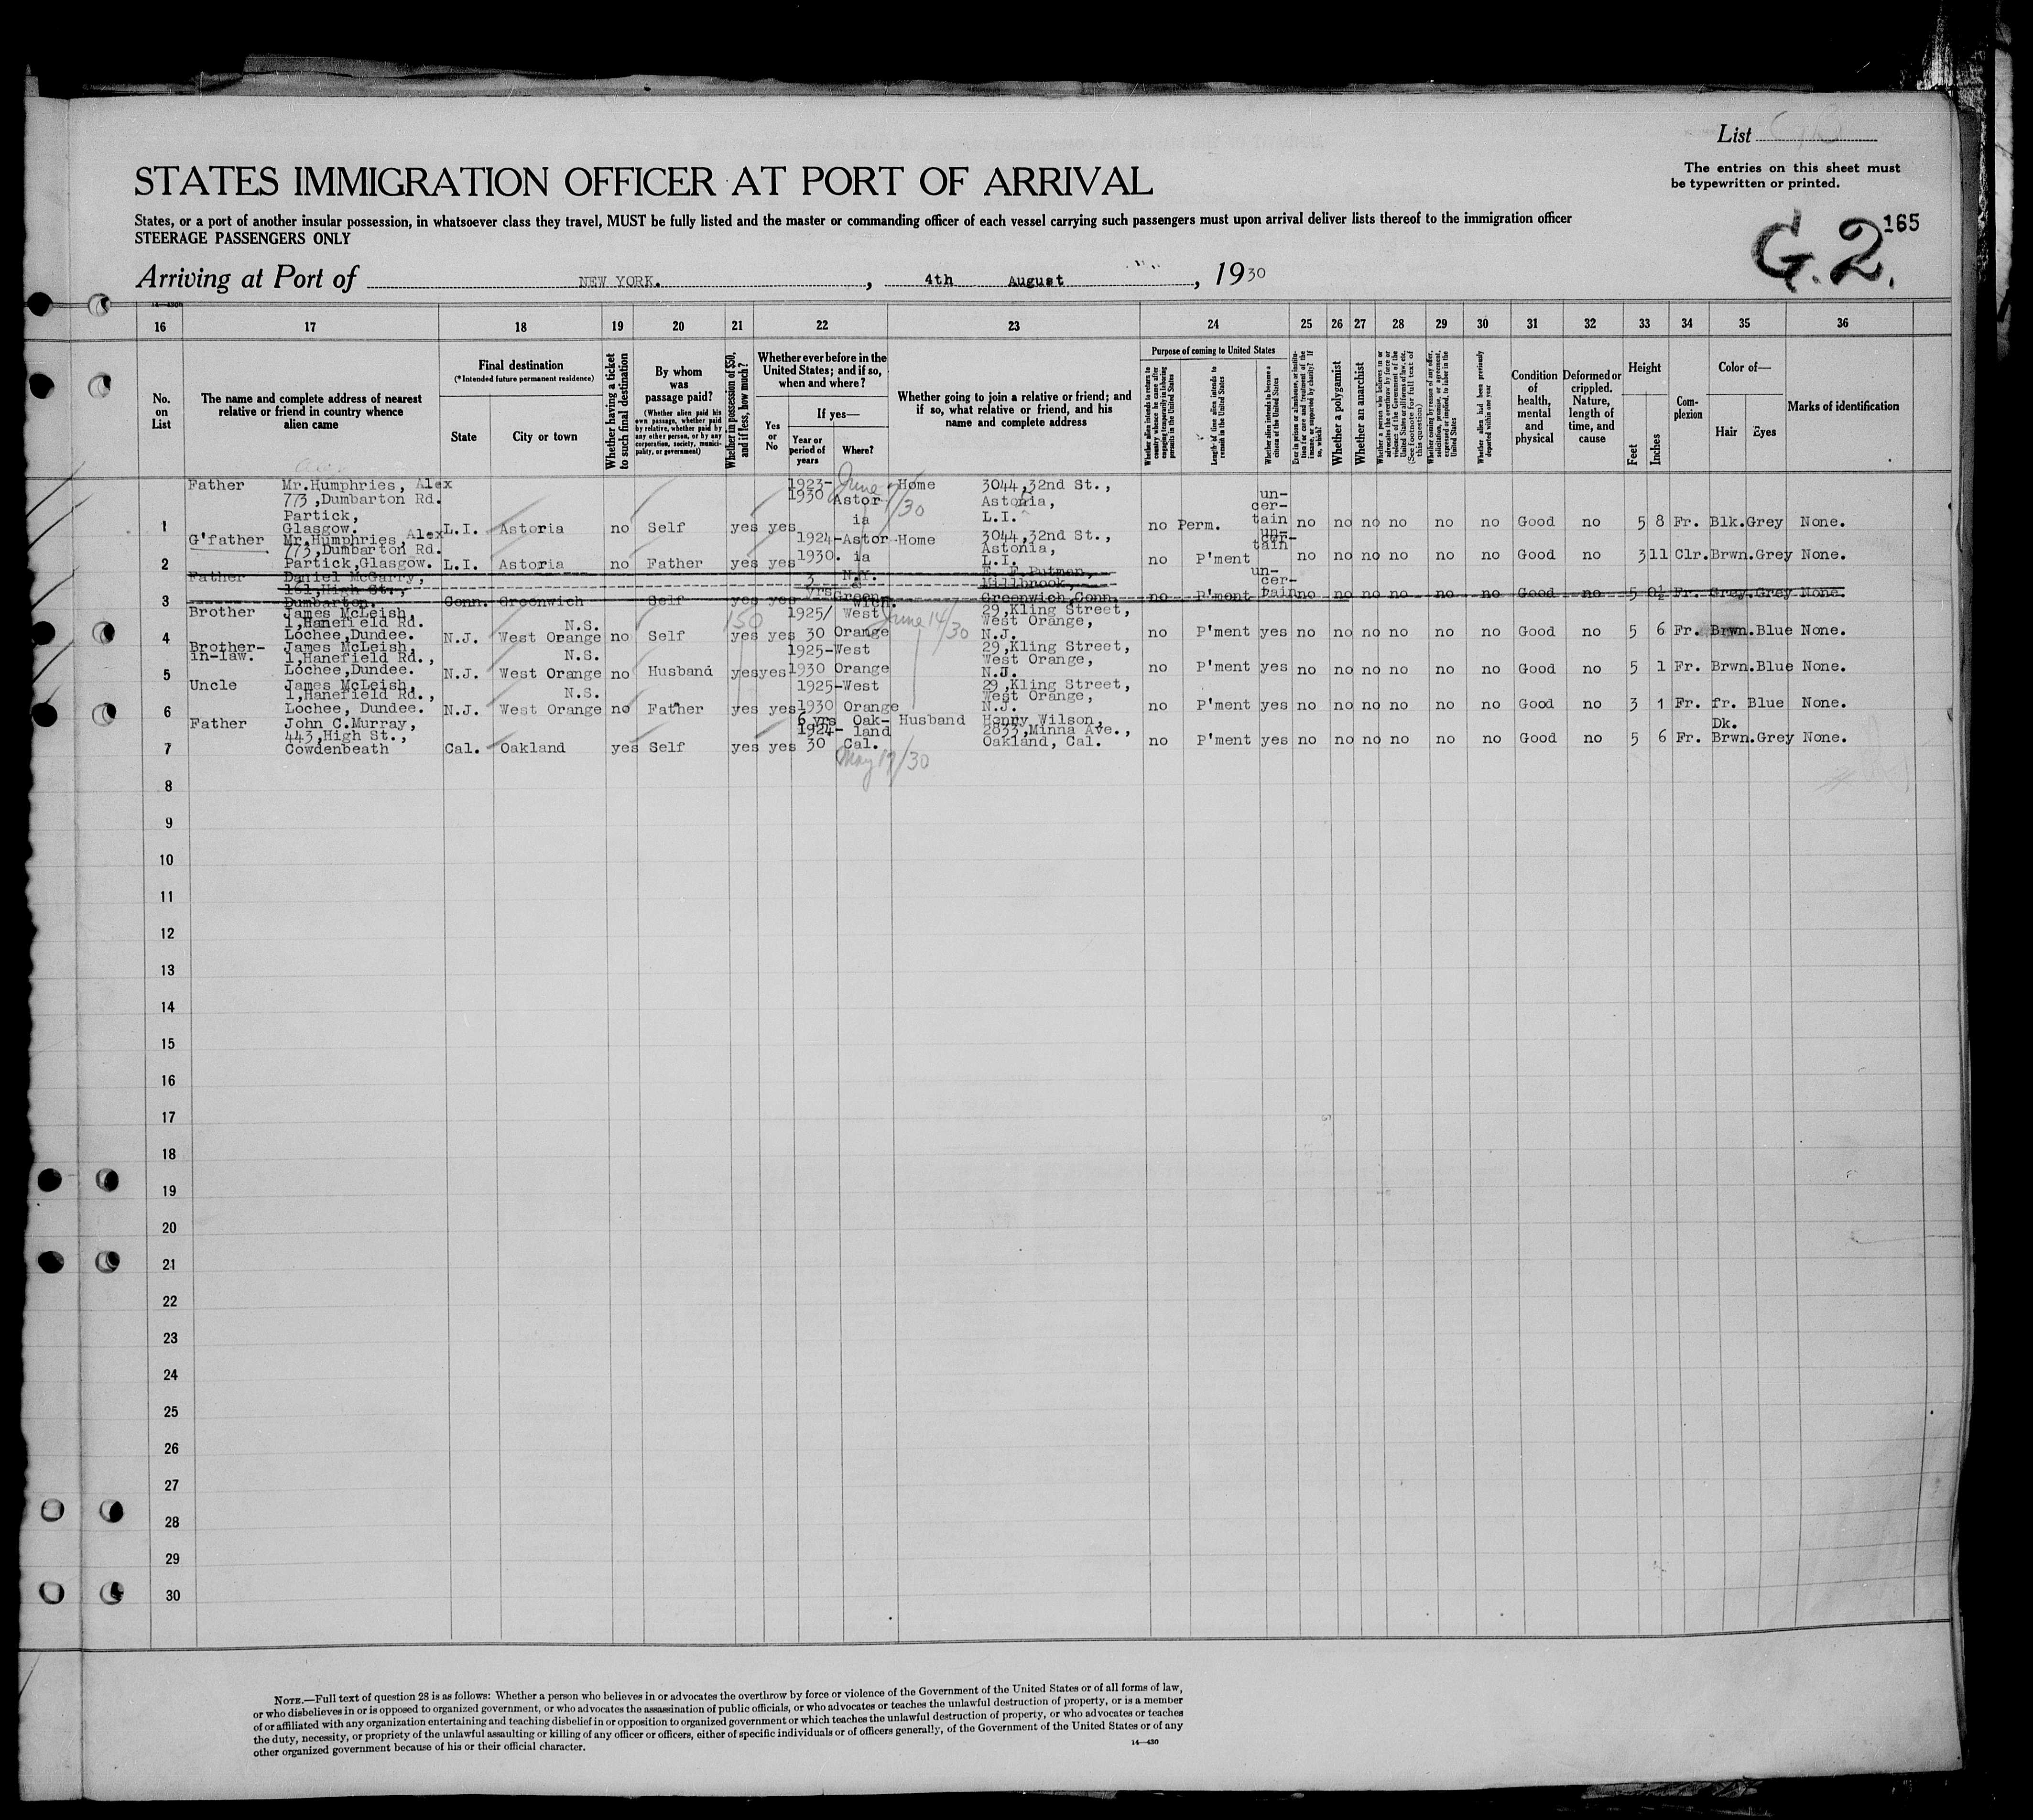 List
The entries on this sheet must
be typewritten or printed.
STATES IMMIGRATION OFFICER AT PORT OF ARRIVAL
States, or a port of another insular possession, in whatsoever class they travel, MUST be fully listed and the master or commanding officer of each vessel carrying such passengers must upon arrival deliver lists thereof to the immigration officer
STEERAGE PASSENGERS ONLY
G.2. 165
Arriving at Port of NEW YORK. , 4th August , 1930
16 17 18 19 20 21 22 23 24 25 26 27 28 29 30 31 32 33 34 35 36
No.
on
List
The name and complete address of nearest
relative or friend in country whence
alien came
Final destination
(*Intended future permanent residence)
State
City or town
Whether having a ticket
to such final destination
By whom
was
passage paid?
(Whether alien paid his
own passage, whether paid
by relative, whether paid by
any other person, or by any
corporation, society, munici-
pality, or government)
Whether in possession of $50,
and if less, how much?
Whether ever before in the
United States; and if so,
when and where?
Yes
or
No
If yes—
Year or
period of
years
Where?
Whether going to join a relative or friend; and
if so, what relative or friend, and his
name and complete address
Purpose of coming to United States
Whether alien intends to return to
country whence he came after
engaging temporarily in laboring
pursuits in the United States
Length of time alien intends to
remain in the United States
Whether alien intends to become a
citizen of the United States
Ever in prison or almshouse, or institu-
tion for care and treatment of the
insane, or supported by charity? If
so, which?
Whether a polygamist
Whether an anarchist
Whether a person who believes in or
advocates the overthrow by force or
violence of the Government of the
United States or all forms of law, etc.
(See footnote for full text of
this question)
Whether coming by reason of any offer,
solicitation, promise, or agreement,
expressed or implied, to labor in the
United States
Whether alien had been previously
deported within one year
Condition
of
health,
mental
and
physical
Deformed or
crippled.
Nature,
length of
time, and
cause
Height
Feet
Inches
Com-
plexion
Color of—
Hair Eyes
Marks of identification
Father Mr.Humphries, Alex 1923- June Home 3044,32nd St.,
773,Dumbarton Rd. 1930 Astor 7/30 Astoria, un-
Partick, ia L.I. cer-
1 Glasgow. L.I. Astoria no Self yes yes no Perm. tain no no no no no no Good no 5 8 Fr. Blk.Grey None.
G'father Mr.Humphries, Alex 1924-Astor-Home 3044,32nd St., un-
773,Dumbarton Rd. Astonia, tain
2 Partick,Glasgow. L.I. Astoria no Father yes yes 1930. ia L.I. no P'ment no no no no no no Good no 3 11 Clr.Brwn.Grey None.
Father Daniel McGarry, 3 N.Y. E. F.Putman, un-
161,High St., yrs & Millbrook, cer-
3 Dumbarton. Conn. Greenwich Self yes yes Green wich. Greenwich,Conn. no P'ment tain no no no no no no Good no 5 0½ Fr. Grey.Grey None.
Brother James McLeish, 150 1925/ West June 14/30 29,Kling Street,
1,Hanefield Rd. N.S. West Orange,
4 Lochee,Dundee. N.J. West Orange no Self yes yes 30 Orange N.J. no P'ment yes no no no no no no Good no 5 6 Fr. Brwn.Blue None.
Brother- James McLeish, 1925-West 29,Kling Street,
in-law. 1,Hanefield Rd., N.S. West Orange,
5 Lochee,Dundee. N.J. West Orange no Husband yes yes 1930 Orange N.J. no P'ment yes no no no no no no Good no 5 1 Fr. Brwn.Blue None.
Uncle James McLeish, 1925-West 29,Kling Street,
1,Hanefield Rd., N.S. West Orange,
6 Lochee, Dundee. N.J. West Orange no Father yes yes 1930 Orange N.J. no P'ment yes no no no no no no Good no 3 1 Fr. fr. Blue None.
Father John C.Murray, 6 yrs Oak- Husband Henry Wilson, Dk.
443,High St., 1924- land 2833,Minna Ave.,
7 Cowdenbeath Cal. Oakland yes Self yes yes 30 Cal. Oakland, Cal. no P'ment yes no no no no no no Good no 5 6 Fr. Brwn.Grey None.
May 17/30
8
9
10
11
12
13
14
15
16
17
18
19
20
21
22
23
24
25
26
27
28
29
30
NOTE.—Full text of question 28 is as follows: Whether a person who believes in or advocates the overthrow by force or violence of the Government of the United States or of all forms of law,
or who disbelieves in or is opposed to organized government, or who advocates the assassination of public officials, or who advocates or teaches the unlawful destruction of property, or is a member
of or affiliated with any organization entertaining and teaching disbelief in or opposition to organized government or which teaches the unlawful destruction of property, or who advocates or teaches
the duty, necessity, or propriety of the unlawful assaulting or killing of any officer or officers, either of specific individuals or of officers generally, of the Government of the United States or of any
other organized government because of his or their official character.
14—430